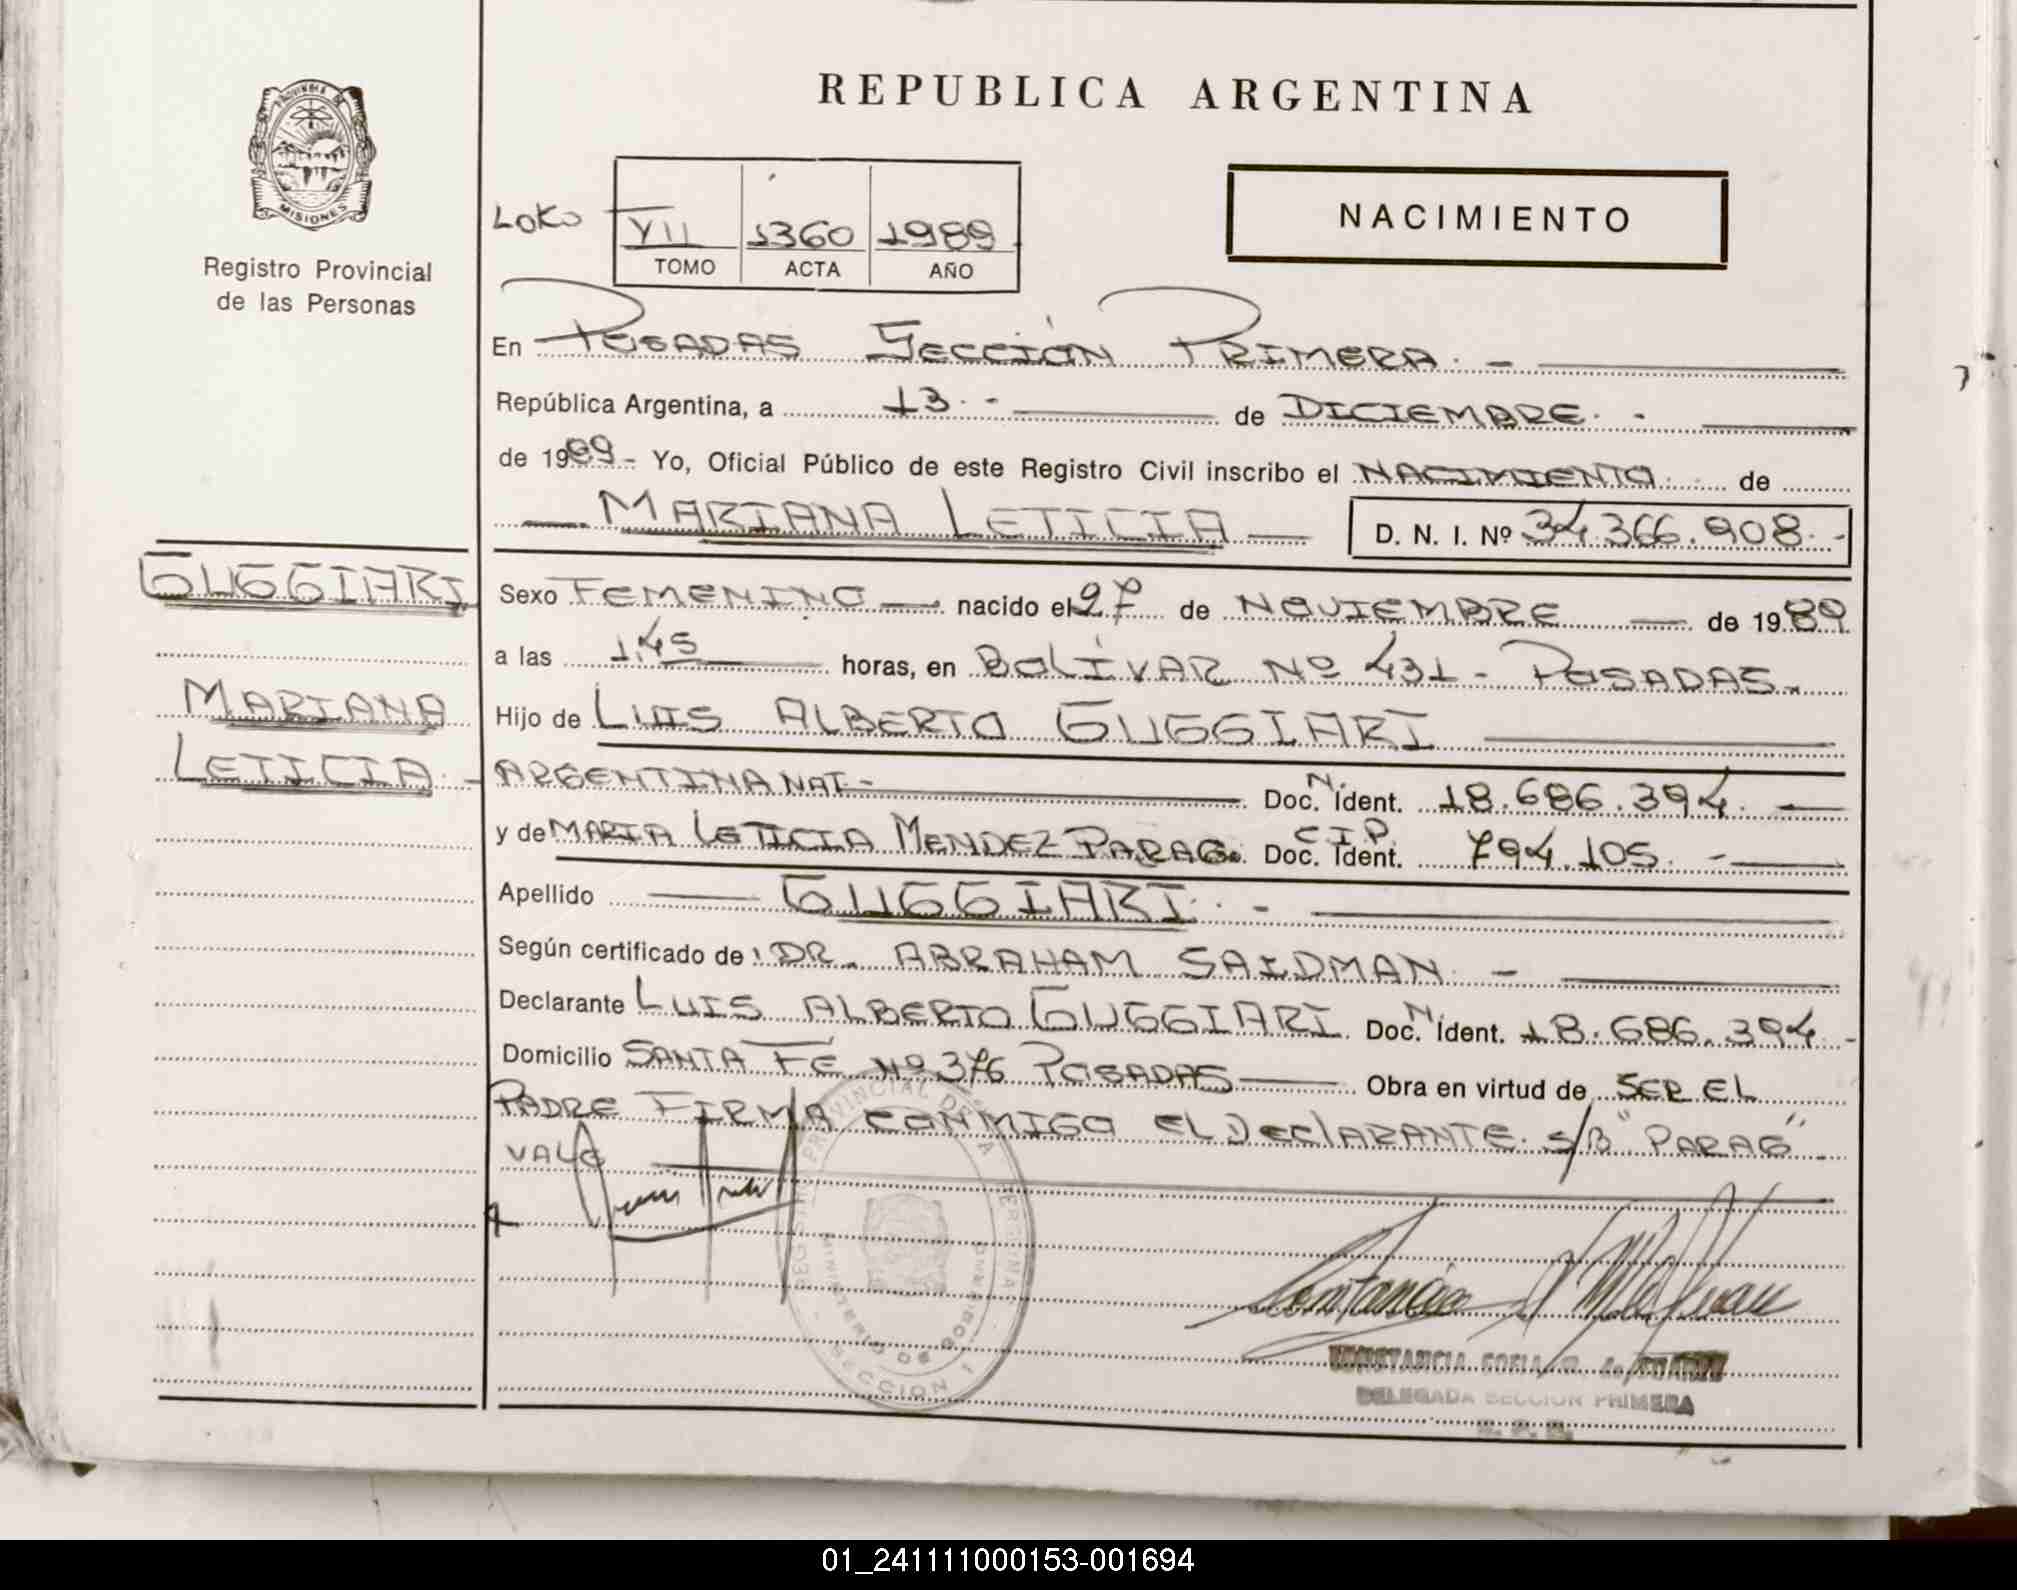 REPUBLICA ARGENTINA
PROVINCIA DE
MISIONES
Registro Provincial
de las Personas
NACIMIENTO
LOKO
VII 1360 1989
TOMO ACTA AÑO
En POSADAS SECCIÓN PRIMERA. -
República Argentina, a 13.- de DICIEMBRE. -
de 1989.- Yo, Oficial Público de este Registro Civil inscribo el NACIMIENTO de
MARIANA LETICIA D. N. I. Nº 34.366.908.-
GUGGIARI
MARIANA
LETICIA.-
Sexo FEMENINO nacido el 27 de NOVIEMBRE de 1989
a las 1,45 horas, en BOLÍVAR Nº 431 - POSADAS.
Hijo de LUIS ALBERTO GUGGIARI
ARGENTINA NAT.- Doc. N. Ident. 18.686.394.
y de MARIA LETICIA MENDEZ PARAG. Doc. C.I.P. Ident. 794.105. -
Apellido GUGGIARI. -
Según certificado de: DR. ABRAHAM SAIDMAN. -
Declarante LUIS ALBERTO GUGGIARI. Doc. N. Ident. 18.686.394.-
Domicilio SANTA FE Nº 376 POSADAS Obra en virtud de SER EL
PADRE FIRMA CONMIGO EL DECLARANTE. S/B "PARAG".
VALE
REGISTRO PROVINCIAL DE LA PERSONAS
MINISTERIO DE GOBIERNO
SECCION 1
DELEGADA SECCION PRIMERA
01_241111000153-001694